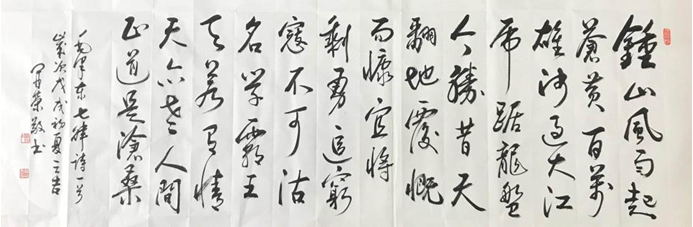 鍾山風雨起
蒼黃百萬
雄师过大江
虎踞龍盤
今勝昔天
翻地覆慨
而慷宜將
剩勇追窮
寇不可沽
名学霸王
天若有情
天亦老人間
正道是滄桑
毛泽东七律诗一首
歲次戊戌初夏之吉
榮敬书